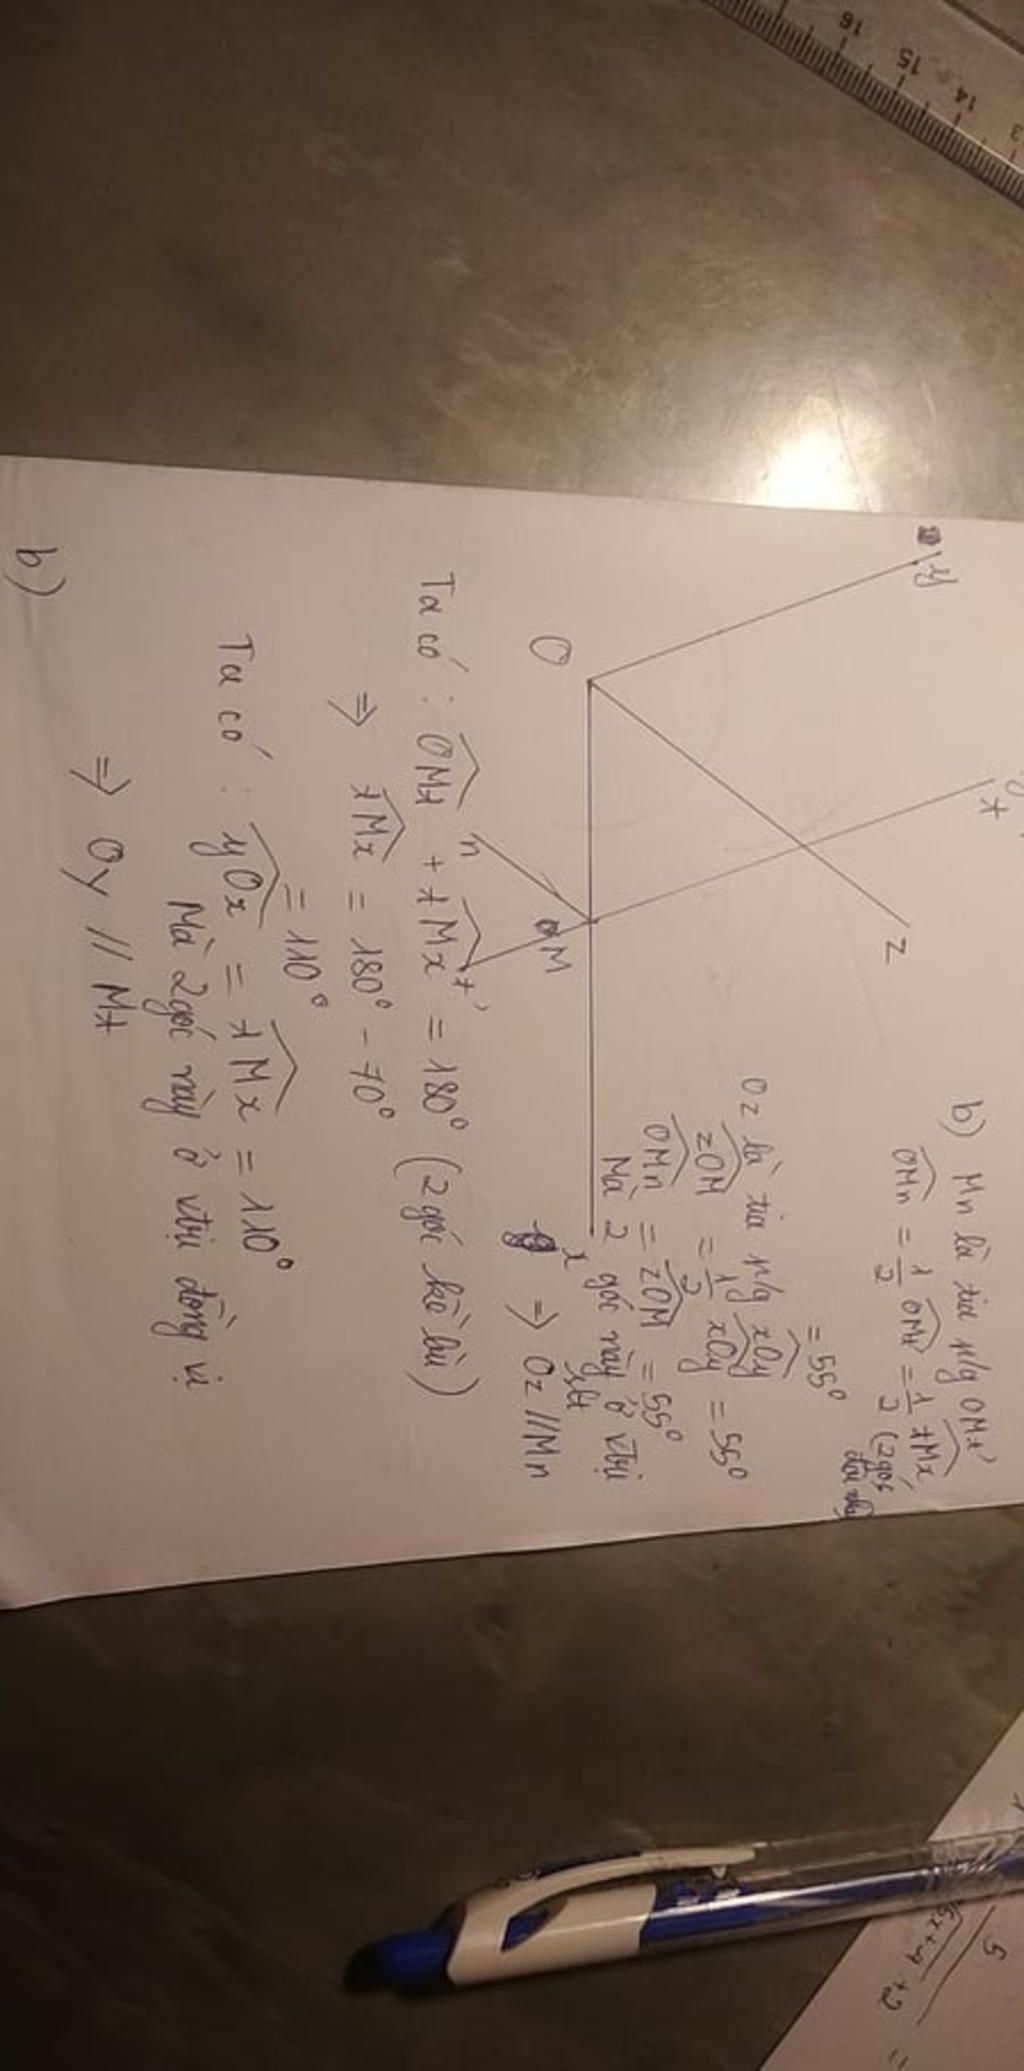 y
t
z
O
M
n
t'
x
Ta có : OMt + tMx = 180° (2 góc kề bù)
⇒ tMx = 180° - 70°
= 110°
Ta có : yOx = tMx = 110°
Mà 2 góc này ở vtrí đồng vị
⇒ Oy // Mt
b)
b) Mn là tia p/g OMt'
OMn = 1/2 OMt' = 1/2 tMx (2 góc
= 55°
Oz là tia p/g xOy
zOM = 1/2 xOy = 55°
OMn = zOM = 55°
Mà 2 góc này ở vtrí
slt
⇒ Oz // Mn
16
15
14
3
5
+ 2
=